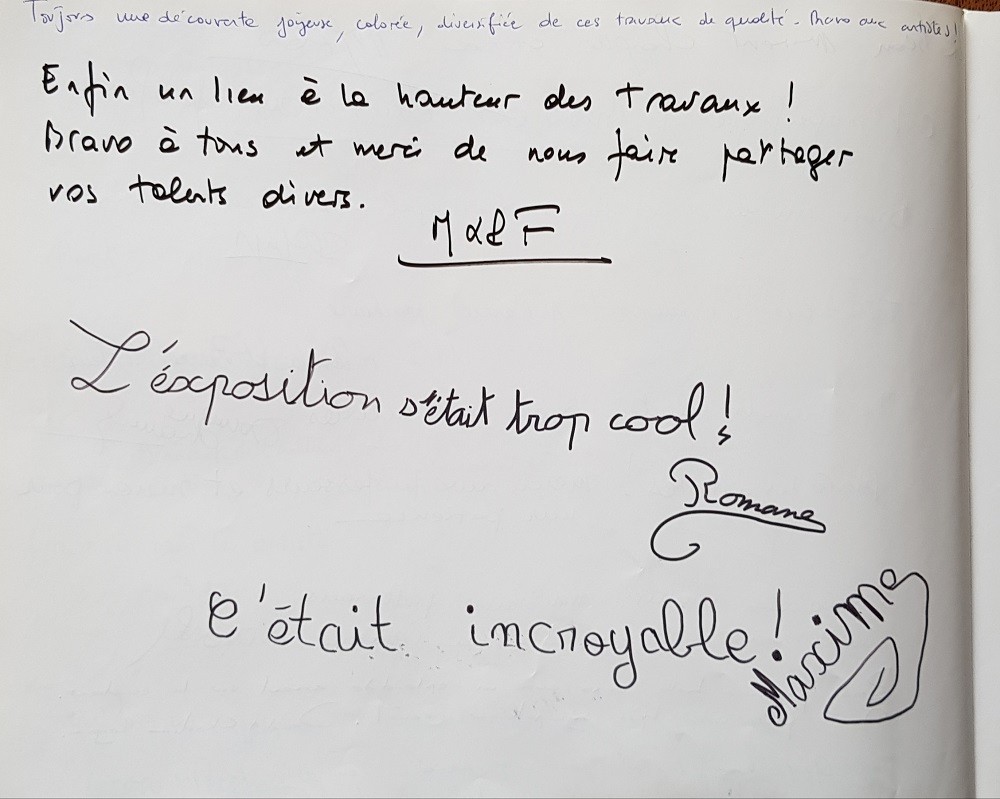 Toujours une découverte joyeuse, colorée, diversifiée de ces travaux de qualité. Bravo aux artistes!
Enfin un lieu à la hauteur des travaux !
Bravo à tous et merci de nous faire partager
vos talents divers.
M & F
L'éxposition s'était trop cool !
Romane
C'était incroyable !
Maxime